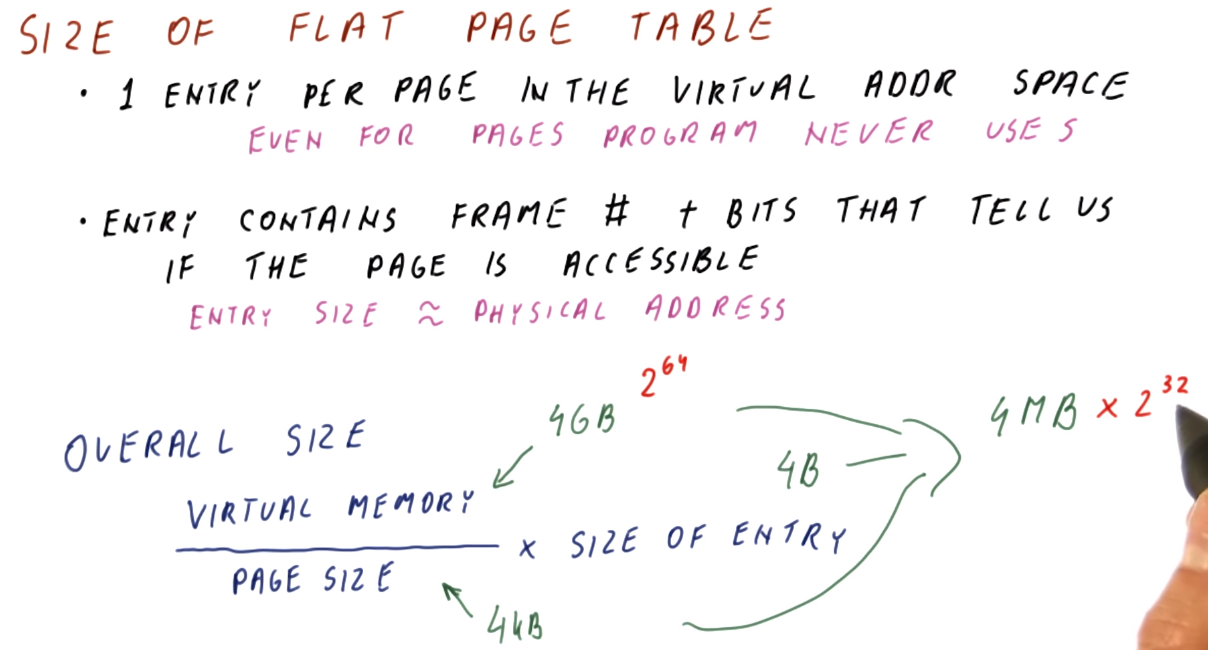 SIZE OF FLAT PAGE TABLE
· 1 ENTRY PER PAGE IN THE VIRTUAL ADDR SPACE
EVEN FOR PAGES PROGRAM NEVER USES
· ENTRY CONTAINS FRAME # + BITS THAT TELL US
IF THE PAGE IS ACCESSIBLE
ENTRY SIZE ≈ PHYSICAL ADDRESS
OVERALL SIZE
4GB 2^64
4MB × 2^32
4B
VIRTUAL MEMORY
PAGE SIZE
× SIZE OF ENTRY
4kB